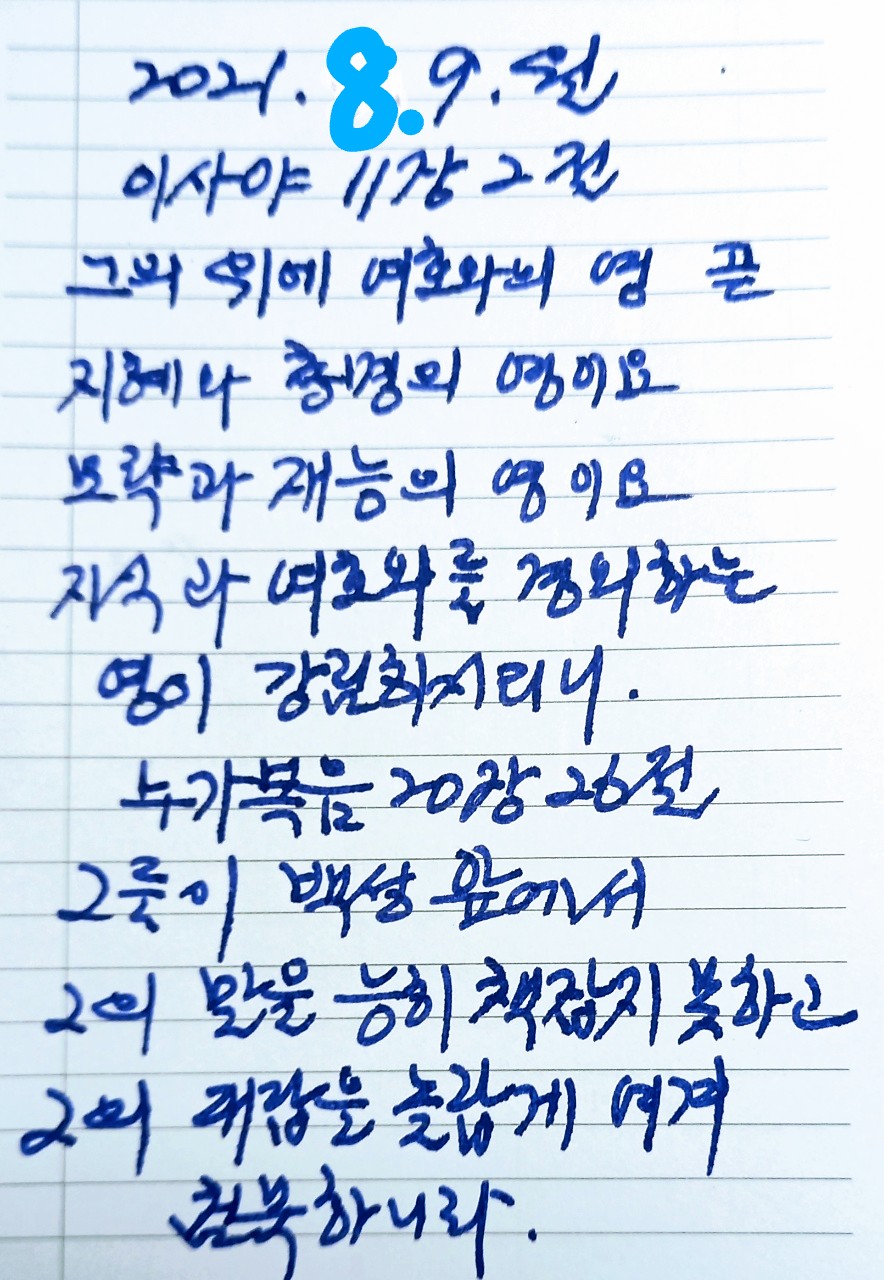 2021. 8. 9. 월
이사야 11장 2절
그의 위에 여호와의 영 곧
지혜나 총경의 영이요
모략과 재능의 영이요
지식과 여호와를 경외하는
영이 강림하시리니.
누가복음 20장 26절
그들이 백성 앞에서
그의 말을 능히 책잡지 못하고
그의 대답을 놀랍게 여겨
침묵하니라.